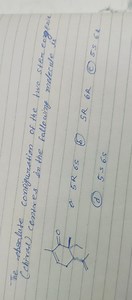 The absolute configuration of the two stereogenic
(chiral) centres in the following molecule is
O
a 5R 6S (b) 5R 6R (c) 5S 6S
(d) 5S 6S